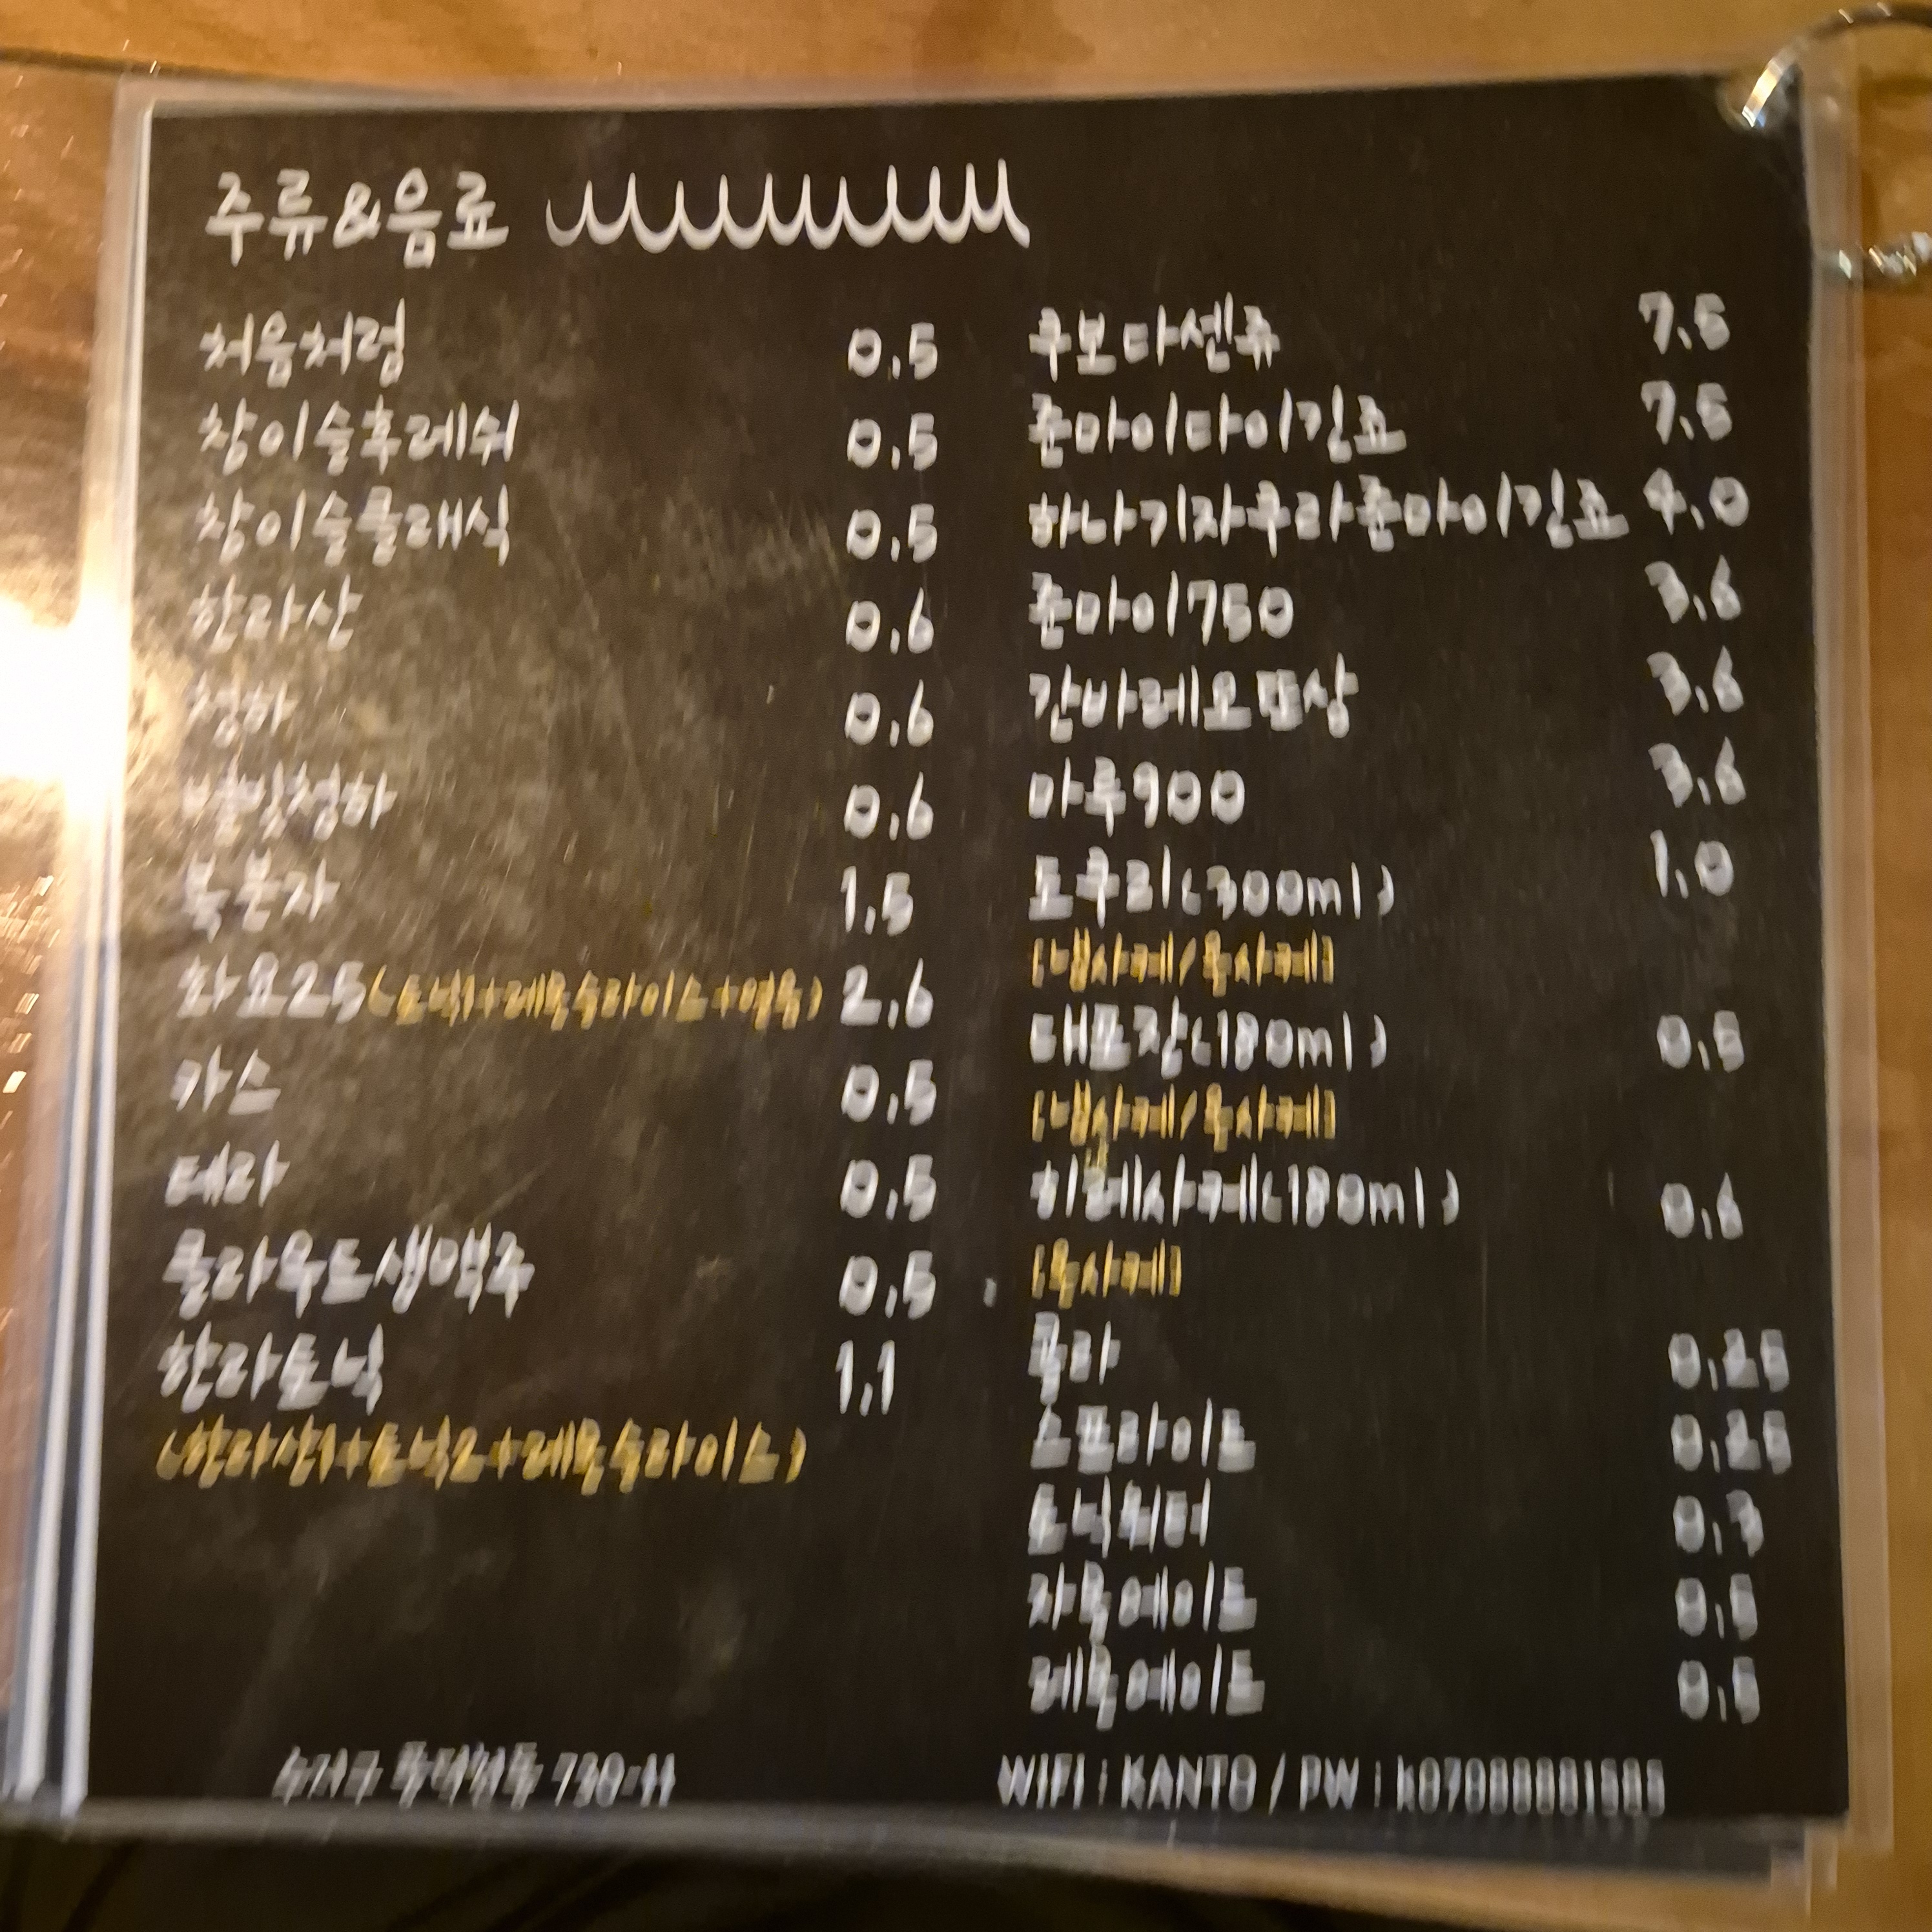 주류&음료
처음처럼 0.5
참이슬후레쉬 0.5
참이슬클래식 0.5
한라산 0.6
청하 0.6
별빛청하 0.6
복분자 1.5
화요25(토닉1+레몬슬라이스+얼음) 2.6
카스 0.5
테라 0.5
클라우드생맥주 0.5
한라토닉 1.1
(한라산1+토닉2+레몬슬라이스)
쿠보타센쥬 7.5
준마이다이긴죠 7.5
하나기자쿠라준마이긴죠 4.0
준마이750 3.6
간바레오또상 3.6
마루900 3.6
도쿠리(300ml) 1.0
[냉사케/온사케]
대포잔(180ml) 0.5
[냉사케/온사케]
히레사케(180ml) 0.6
[온사케]
콜라 0.25
스프라이트 0.25
토닉워터 0.3
자몽에이드 0.5
레몬에이드 0.5
수지구 풍덕천동 730-11
WIFI : KANTO / PW :